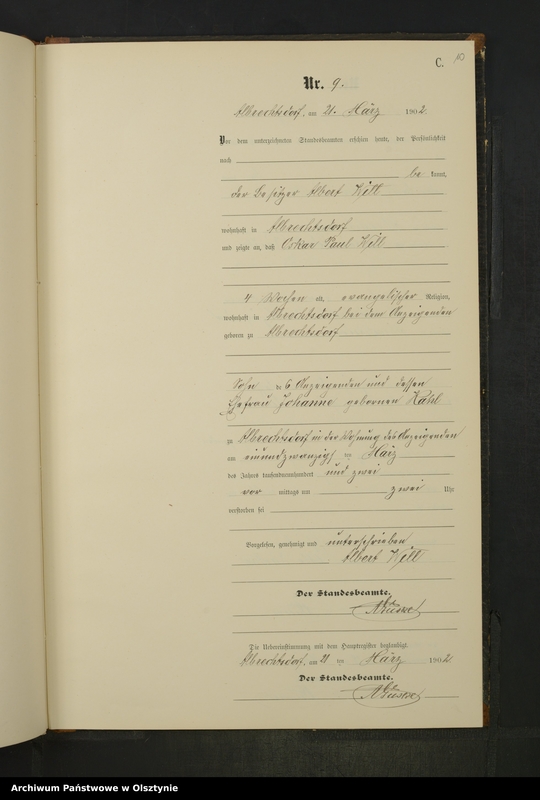 C.
Nr. 9.
Albrechtsdorf, am 21. März 1902.
Vor dem unterzeichneten Standesbeamten erschien heute, der Persönlichkeit
nach
be kannt,
der Besitzer Albert Kill
wohnhaft in Albrechtsdorf
und zeigte an, daß Oskar Paul Kill
4 Wochen alt, evangelischer Religion,
wohnhaft in Albrechtsdorf bei dem Anzeigenden
geboren zu Albrechtsdorf
Sohn des Anzeigenden und dessen
Ehefrau Johanne gebornen
zu Albrechtsdorf in der Wohnung des Anzeigenden
am einundzwanzigsten März
des Jahres tausendneunhundert und zwei
vor mittags um zwei Uhr
verstorben sei
Vorgelesen, genehmigt und unterschrieben
Albert Kill
Der Standesbeamte.
Die Uebereinstimmung mit dem Hauptregister beglaubigt.
Albrechtsdorf, am 21 ten März 1902.
Der Standesbeamte.
Archiwum Państwowe w Olsztynie